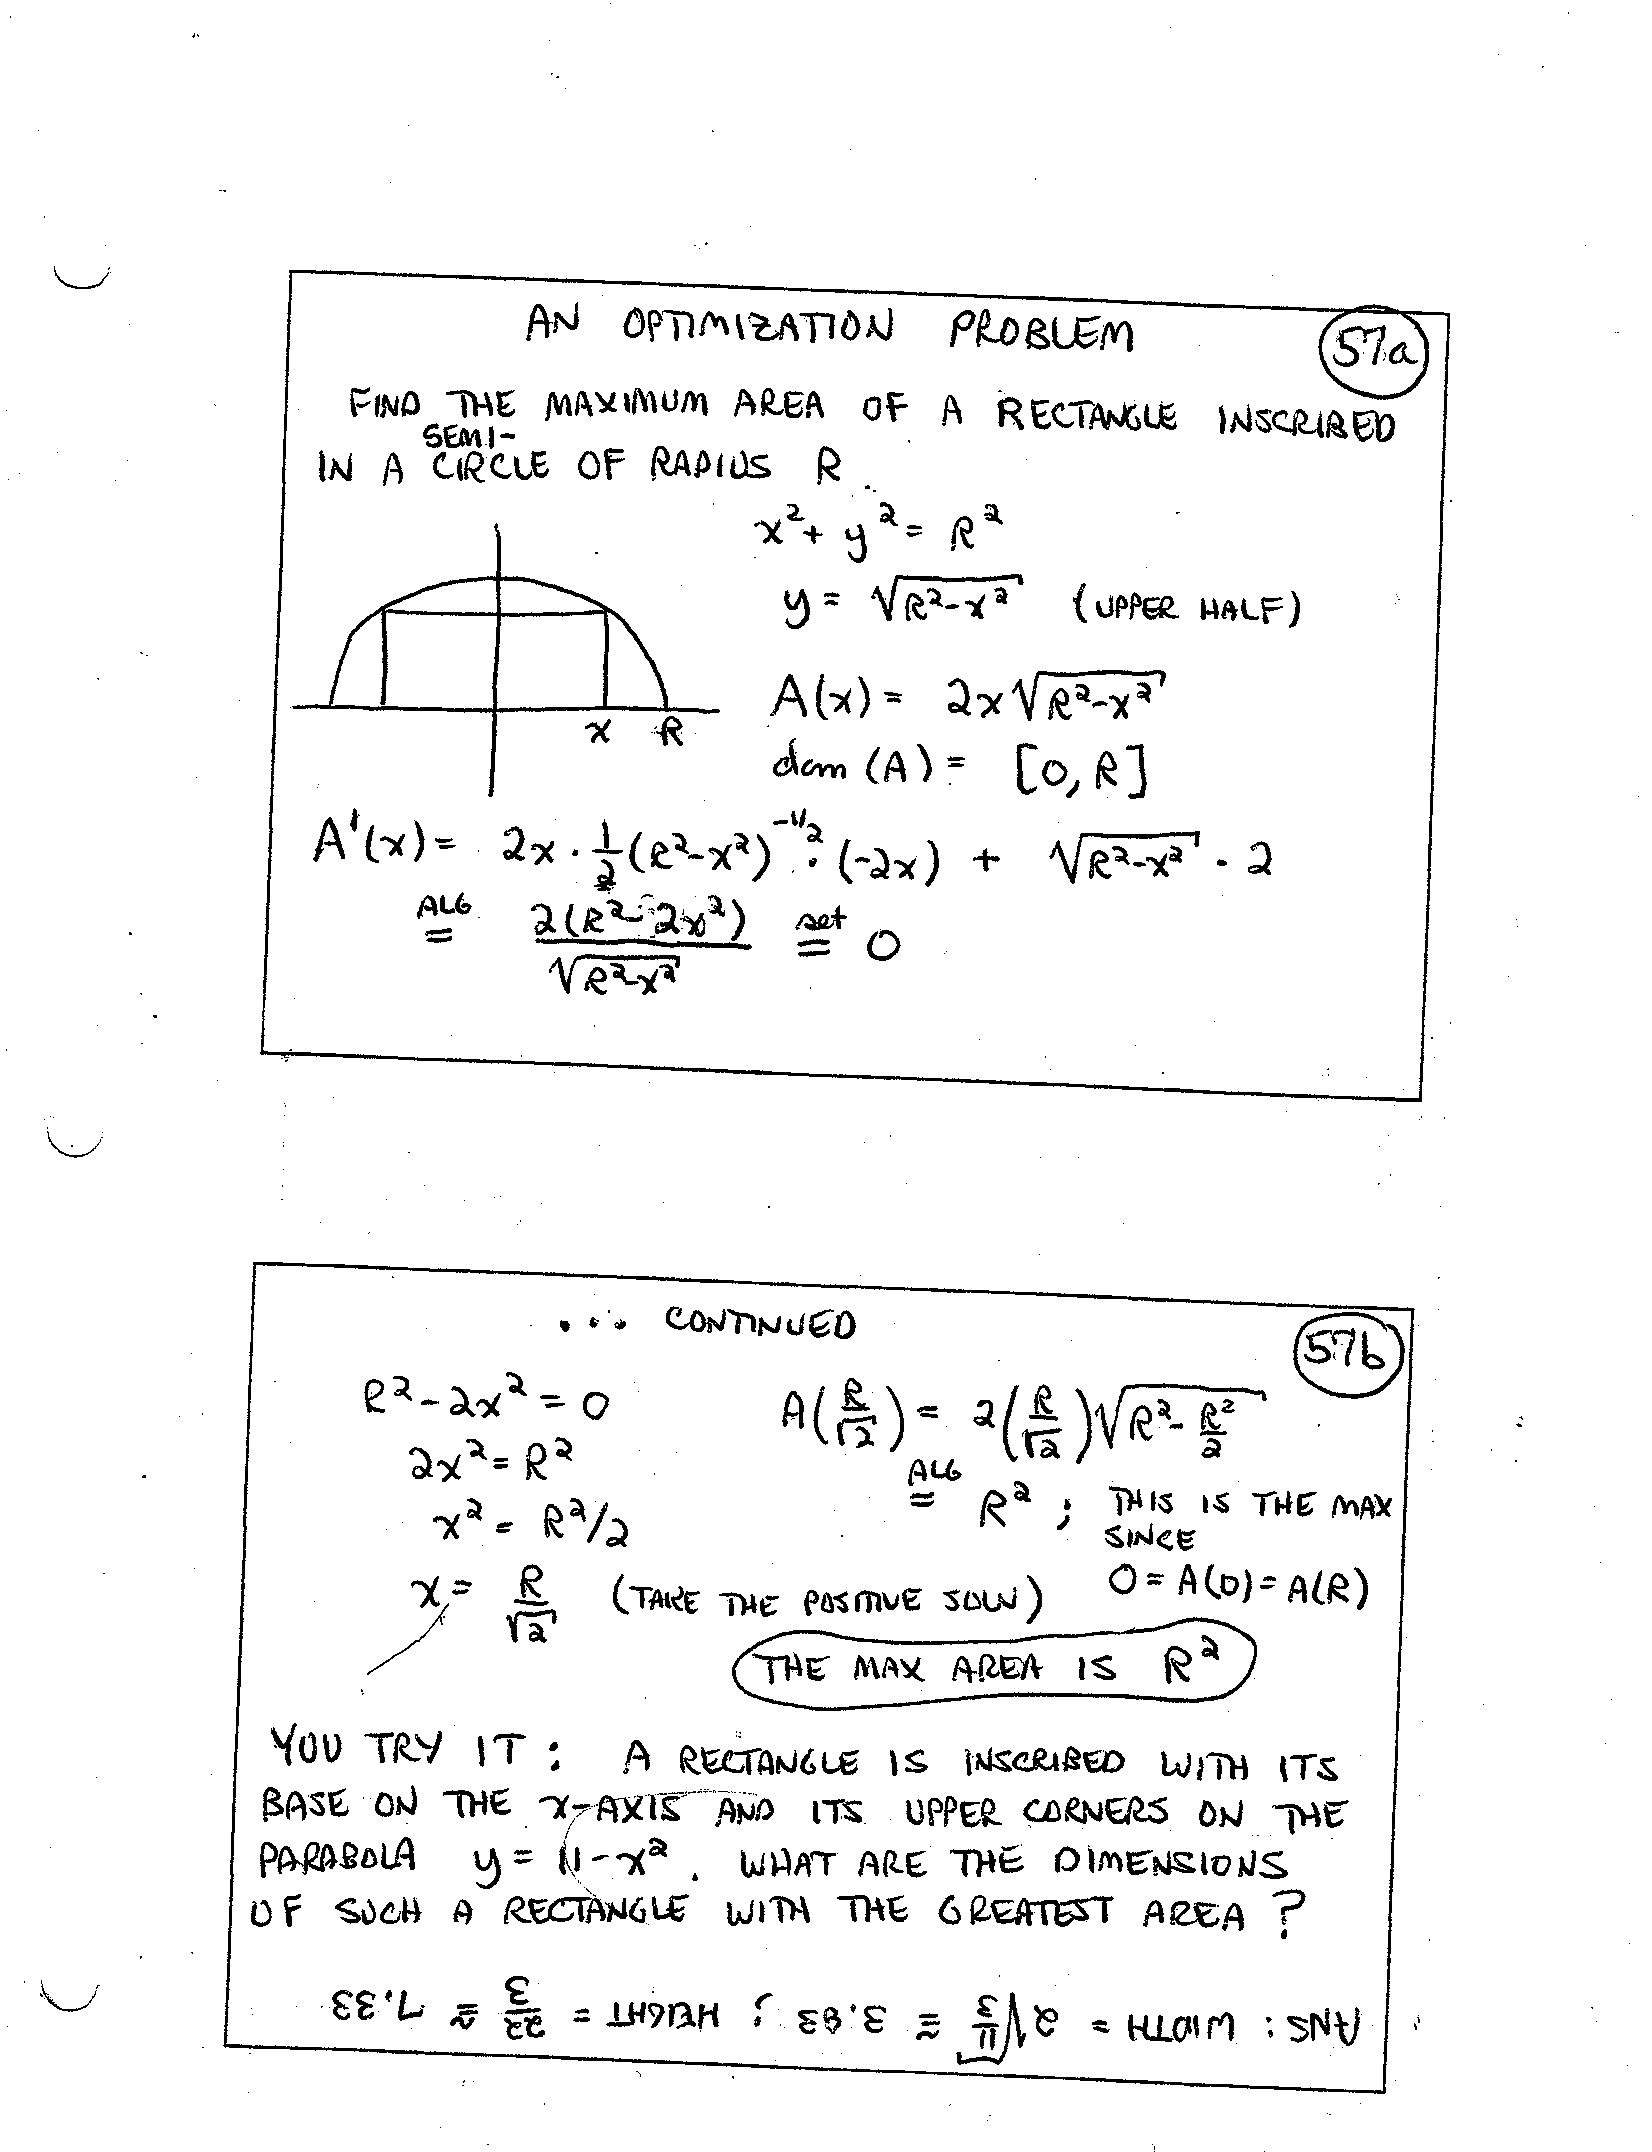 AN OPTIMIZATION PROBLEM
57a
FIND THE MAXIMUM AREA OF A RECTANGLE INSCRIBED
IN A SEMI-CIRCLE OF RADIUS R.
x² + y² = R²
y = √(R²-x²) (UPPER HALF)
A(x) = 2x√(R²-x²)
dom (A) = [0, R]
x R
A'(x) = 2x · 1/2 (R²-x²)^(-1/2) · (-2x) + √(R²-x²) · 2
ALG = 2(R²-2x²)/√(R²-x²) set = 0
... CONTINUED
57b
R²-2x² = 0
2x² = R²
x² = R²/2
x = R/√2 (TAKE THE POSITIVE SOLN)
A(R/√2) = 2(R/√2)√(R²-R²/2)
ALG = R² ; THIS IS THE MAX
SINCE
0 = A(0) = A(R)
THE MAX AREA IS R²
YOU TRY IT : A RECTANGLE IS INSCRIBED WITH ITS
BASE ON THE X-AXIS AND ITS UPPER CORNERS ON THE
PARABOLA y = 11-x². WHAT ARE THE DIMENSIONS
OF SUCH A RECTANGLE WITH THE GREATEST AREA ?
ANS: WIDTH = 2√(11/3) ≈ 3.83 ; HEIGHT = 22/3 ≈ 7.33